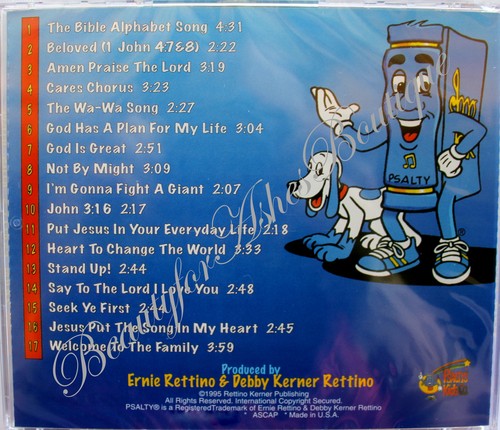 1 The Bible Alphabet Song 4:31
2 Beloved (1 John 4:7&8) 2:22
3 Amen Praise The Lord 3:19
4 Cares Chorus 3:23
5 The Wa-Wa Song 2:27
6 God Has A Plan For My Life 3:04
7 God Is Great 2:51
8 Not By Might 3:09
9 I'm Gonna Fight A Giant 2:07
10 John 3:16 2:17
11 Put Jesus In Your Everyday Life 2:18
12 Heart To Change The World 3:33
13 Stand Up! 2:44
14 Say To The Lord I Love You 2:48
15 Seek Ye First 2:44
16 Jesus Put The Song In My Heart 2:45
17 Welcome To The Family 3:59
PSALTY
BeautyforAshesBoutique
Produced by
Ernie Rettino & Debby Kerner Rettino
©1995 Rettino Kerner Publishing
All Rights Reserved. International Copyright Secured.
PSALTY® is a Registered Trademark of Ernie Rettino & Debby Kerner Rettino
* ASCAP * Made in U.S.A.